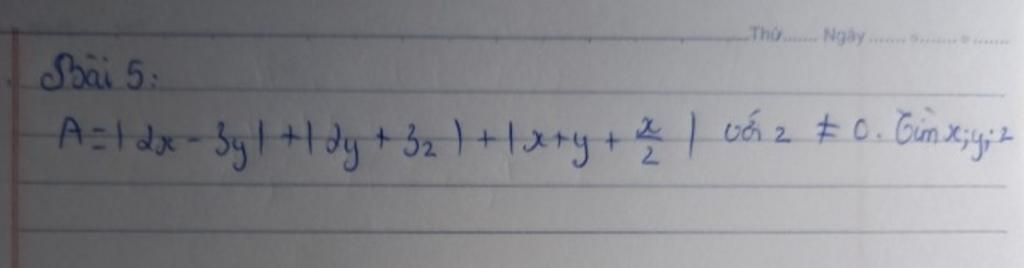 Thứ....... Ngày ....... - ....... - .......
Bài 5:
A = |2x - 3y| + |2y + 3z| + |x + y + x/z| với z ≠ 0. Tìm x; y; z